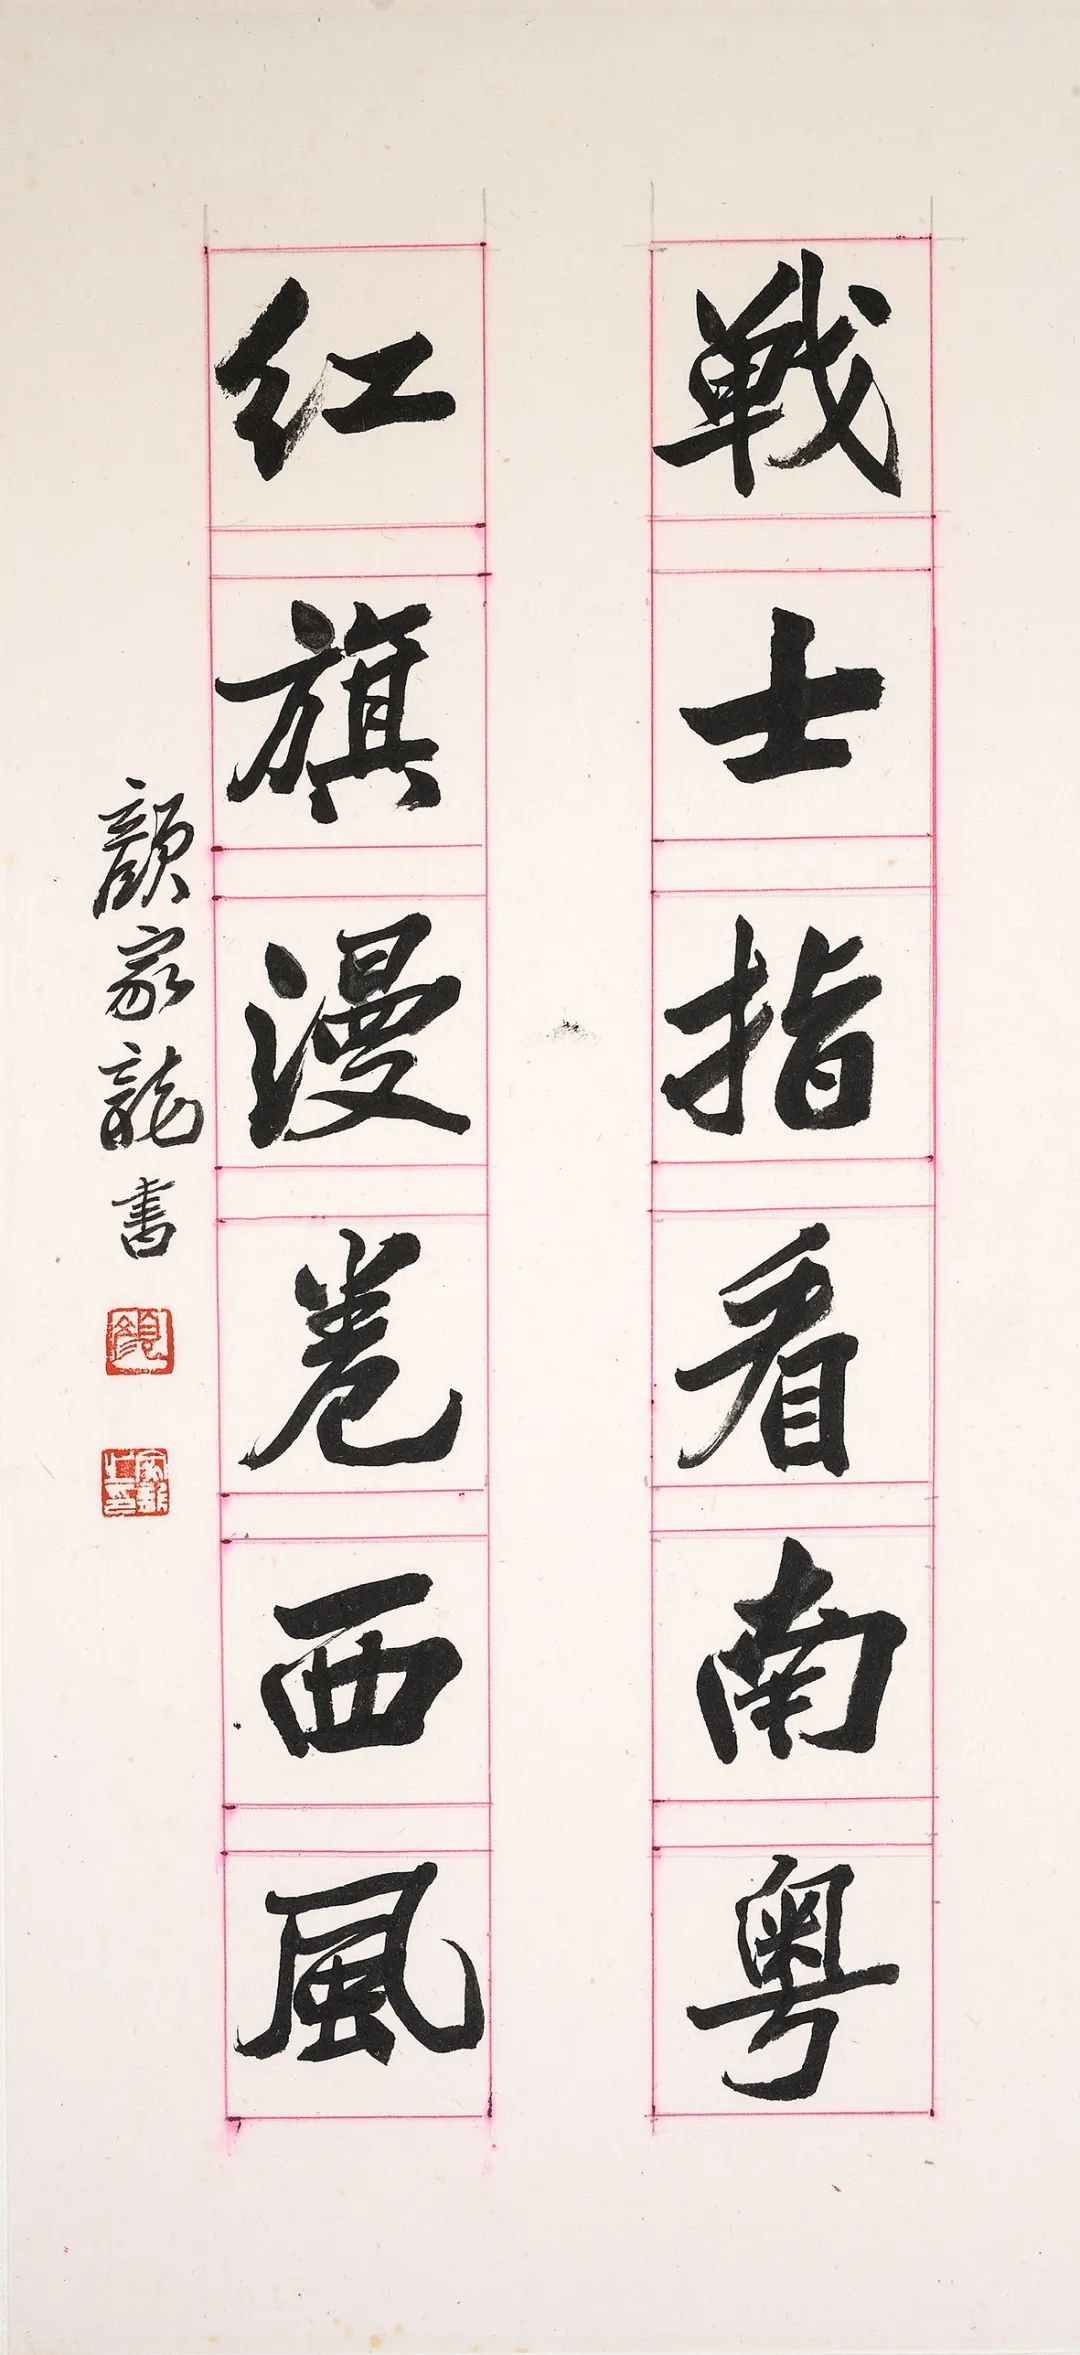 戰士指看南粤
红旗漫卷西風
顔家龍書
顔